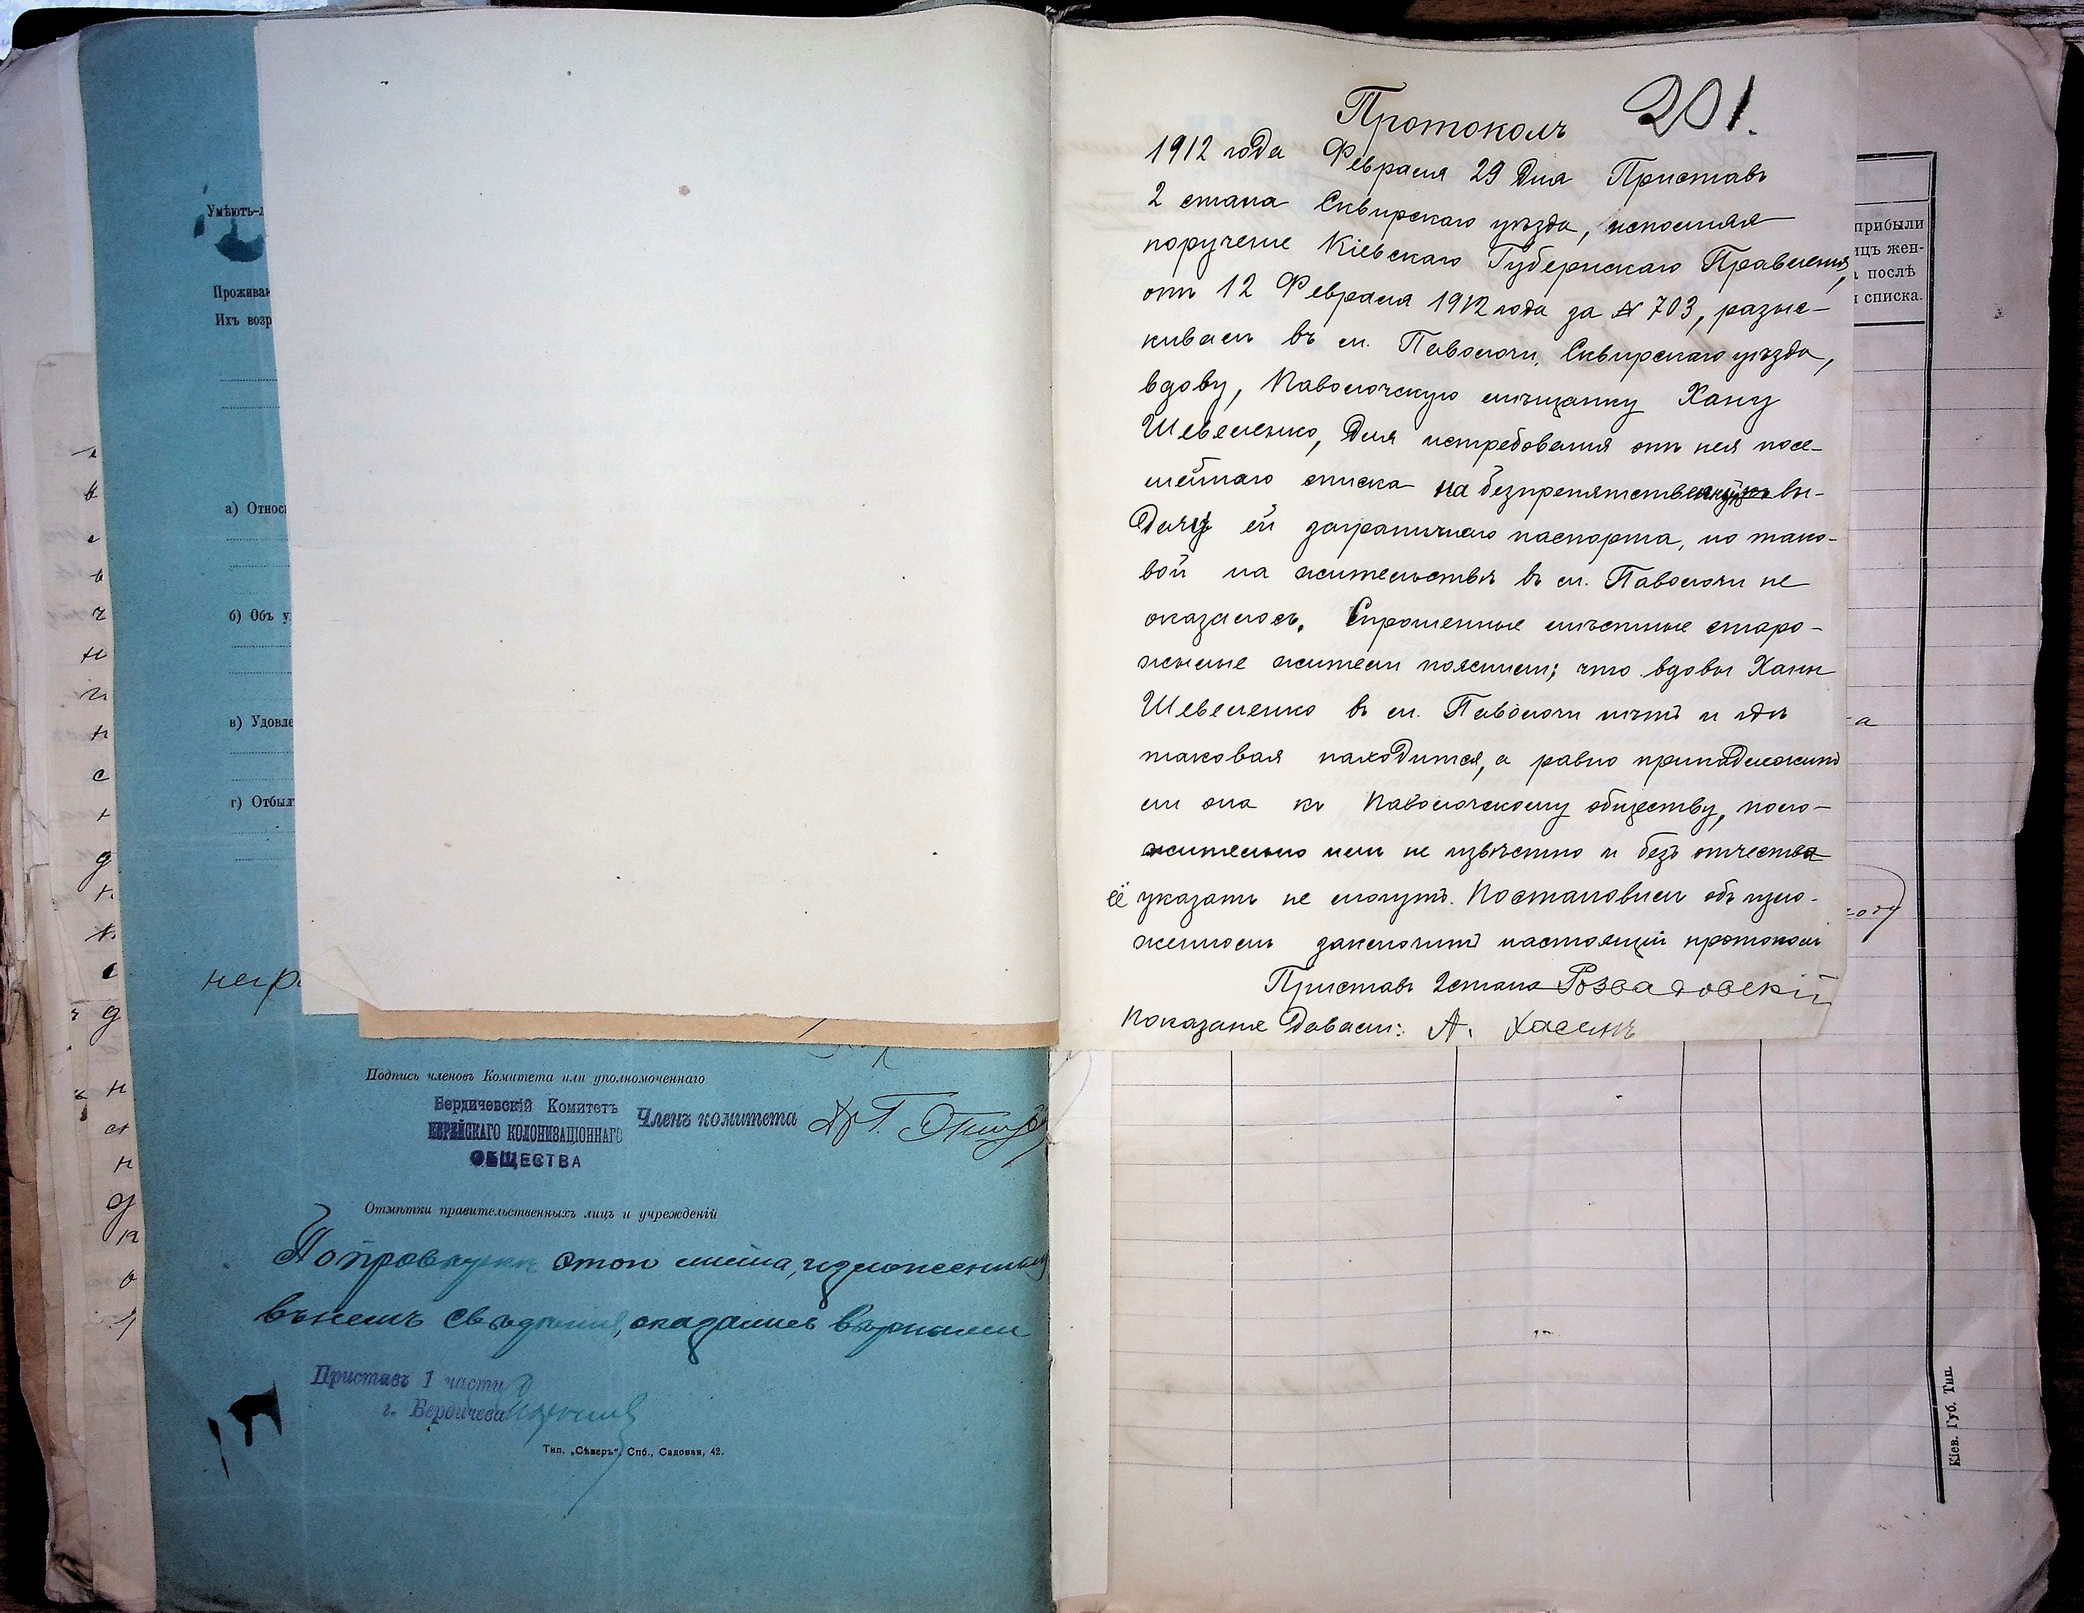 Умѣютъ-л
Прожива
Ихъ возр
а) Относ
б) Объ у
в) Удовле
г) Отбыл
негр
Подпись членовъ Комитета или уполномоченнаго
Бердичевскій Комитетъ
ЕВРЕЙСКАГО КОЛОНИЗАЦІОННАГО
ОБЩЕСТВА
Членъ комитета
Отмѣтки правительственныхъ лицъ и учрежденій
По провѣркѣ этого листа, изложенныя
въ немъ свѣдѣнія, оказались вѣрными
Приставъ 1 части
г. Бердичева
Тип. „Сѣверъ“, Спб., Садовая, 42.
Протоколъ 201.
1912 года Февраля 29 дня Приставъ
2 стана Сквирскаго уѣзда, исполняя
порученіе Кіевскаго Губернскаго Правленія,
отъ 12 Февраля 1912 года за № 703, разыс-
кивалъ въ м. Паволочи, Сквирскаго уѣзда,
вдову, Паволочскую мѣщанку Хану
Шевеленко, для истребованія отъ нея посе-
мейнаго списка на безпрепятственную вы-
дачу ей заграничнаго паспорта, но тако-
вой на жительствѣ въ м. Паволочи не
оказалось. Спрошенные мѣстные старо-
жилые жители пояснили; что вдовы Ханы
Шевеленко въ м. Паволочи нѣтъ и гдѣ
таковая находится, а равно принадлежитъ
ли она къ Паволочскому обществу, поло-
жительно имъ не извѣстно и безъ отчества
её указать не могутъ. Постановилъ объ изло-
женномъ заключить настоящій протоколъ
Приставъ 2 стана Розвадовскій
Показаніе давали: А. Хасинъ
прибыли
ицъ жен-
послѣ
списка.
Кіев. Губ. Тип.